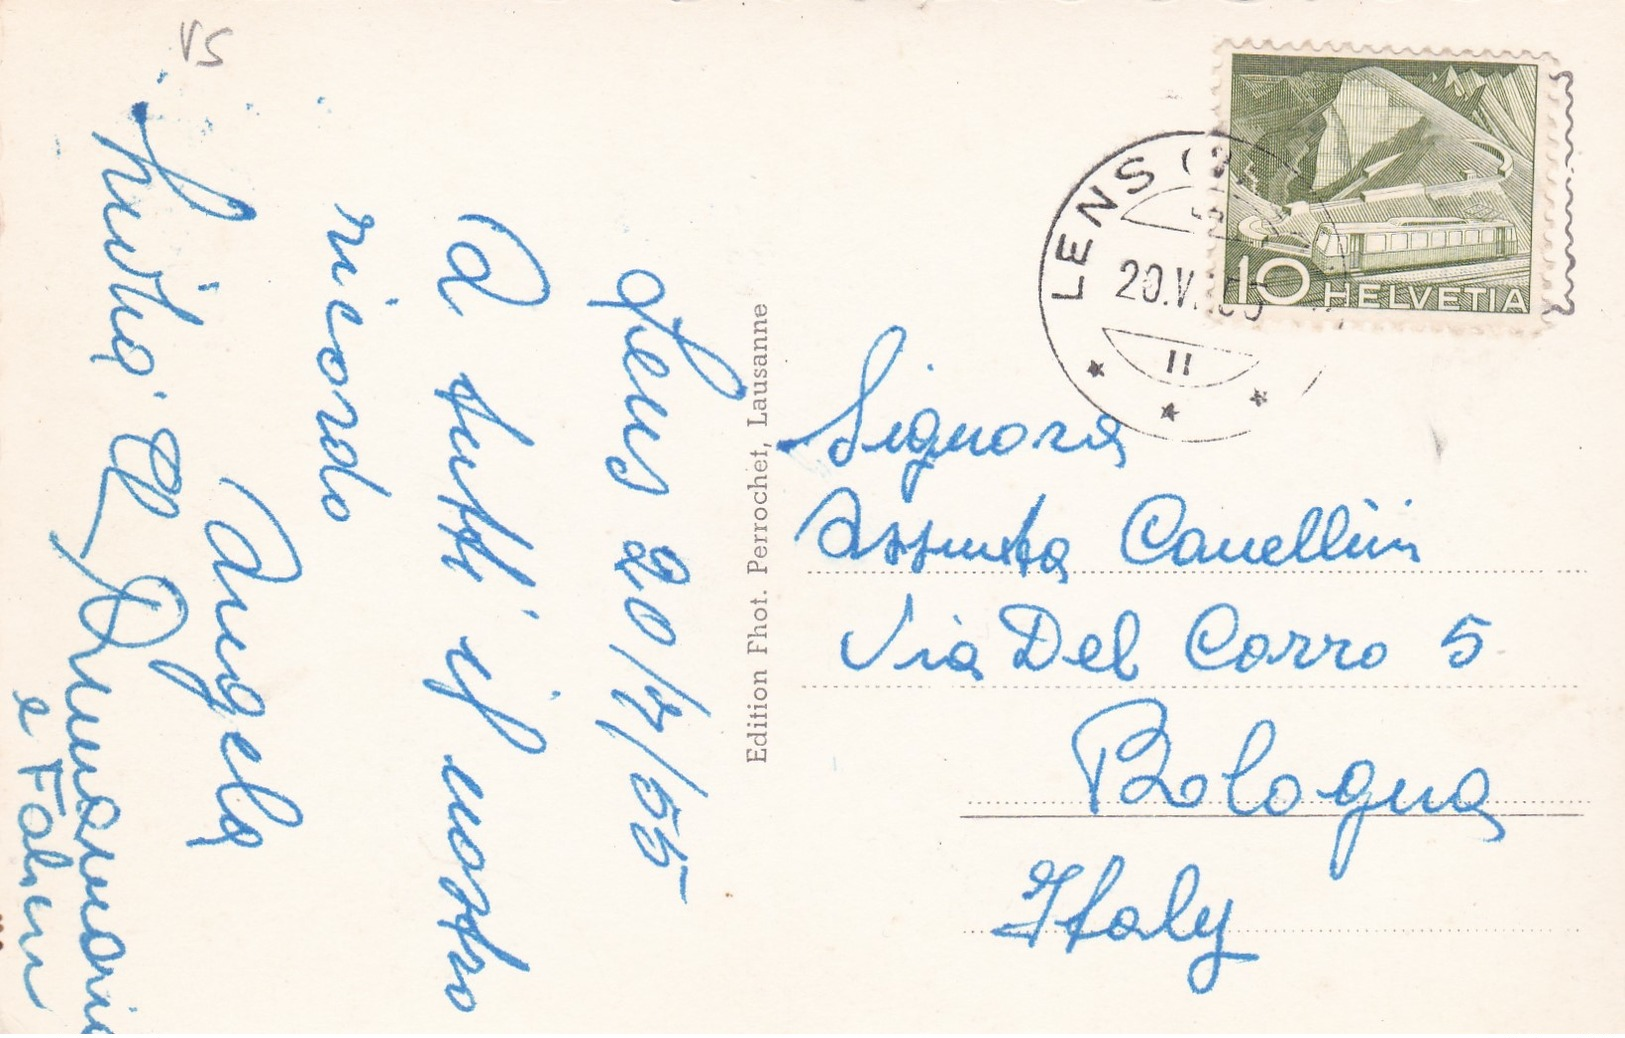 VS
Lens 20/7/55
A tutti il nostro
ricordo
Angela
e Fabin
Edition Fhot. Perrochet, Lausanne
LENS
20.V
11
10 HELVETIA
Signora
Assunta Canellini
Via Del Carro 5
Bologna
Italy